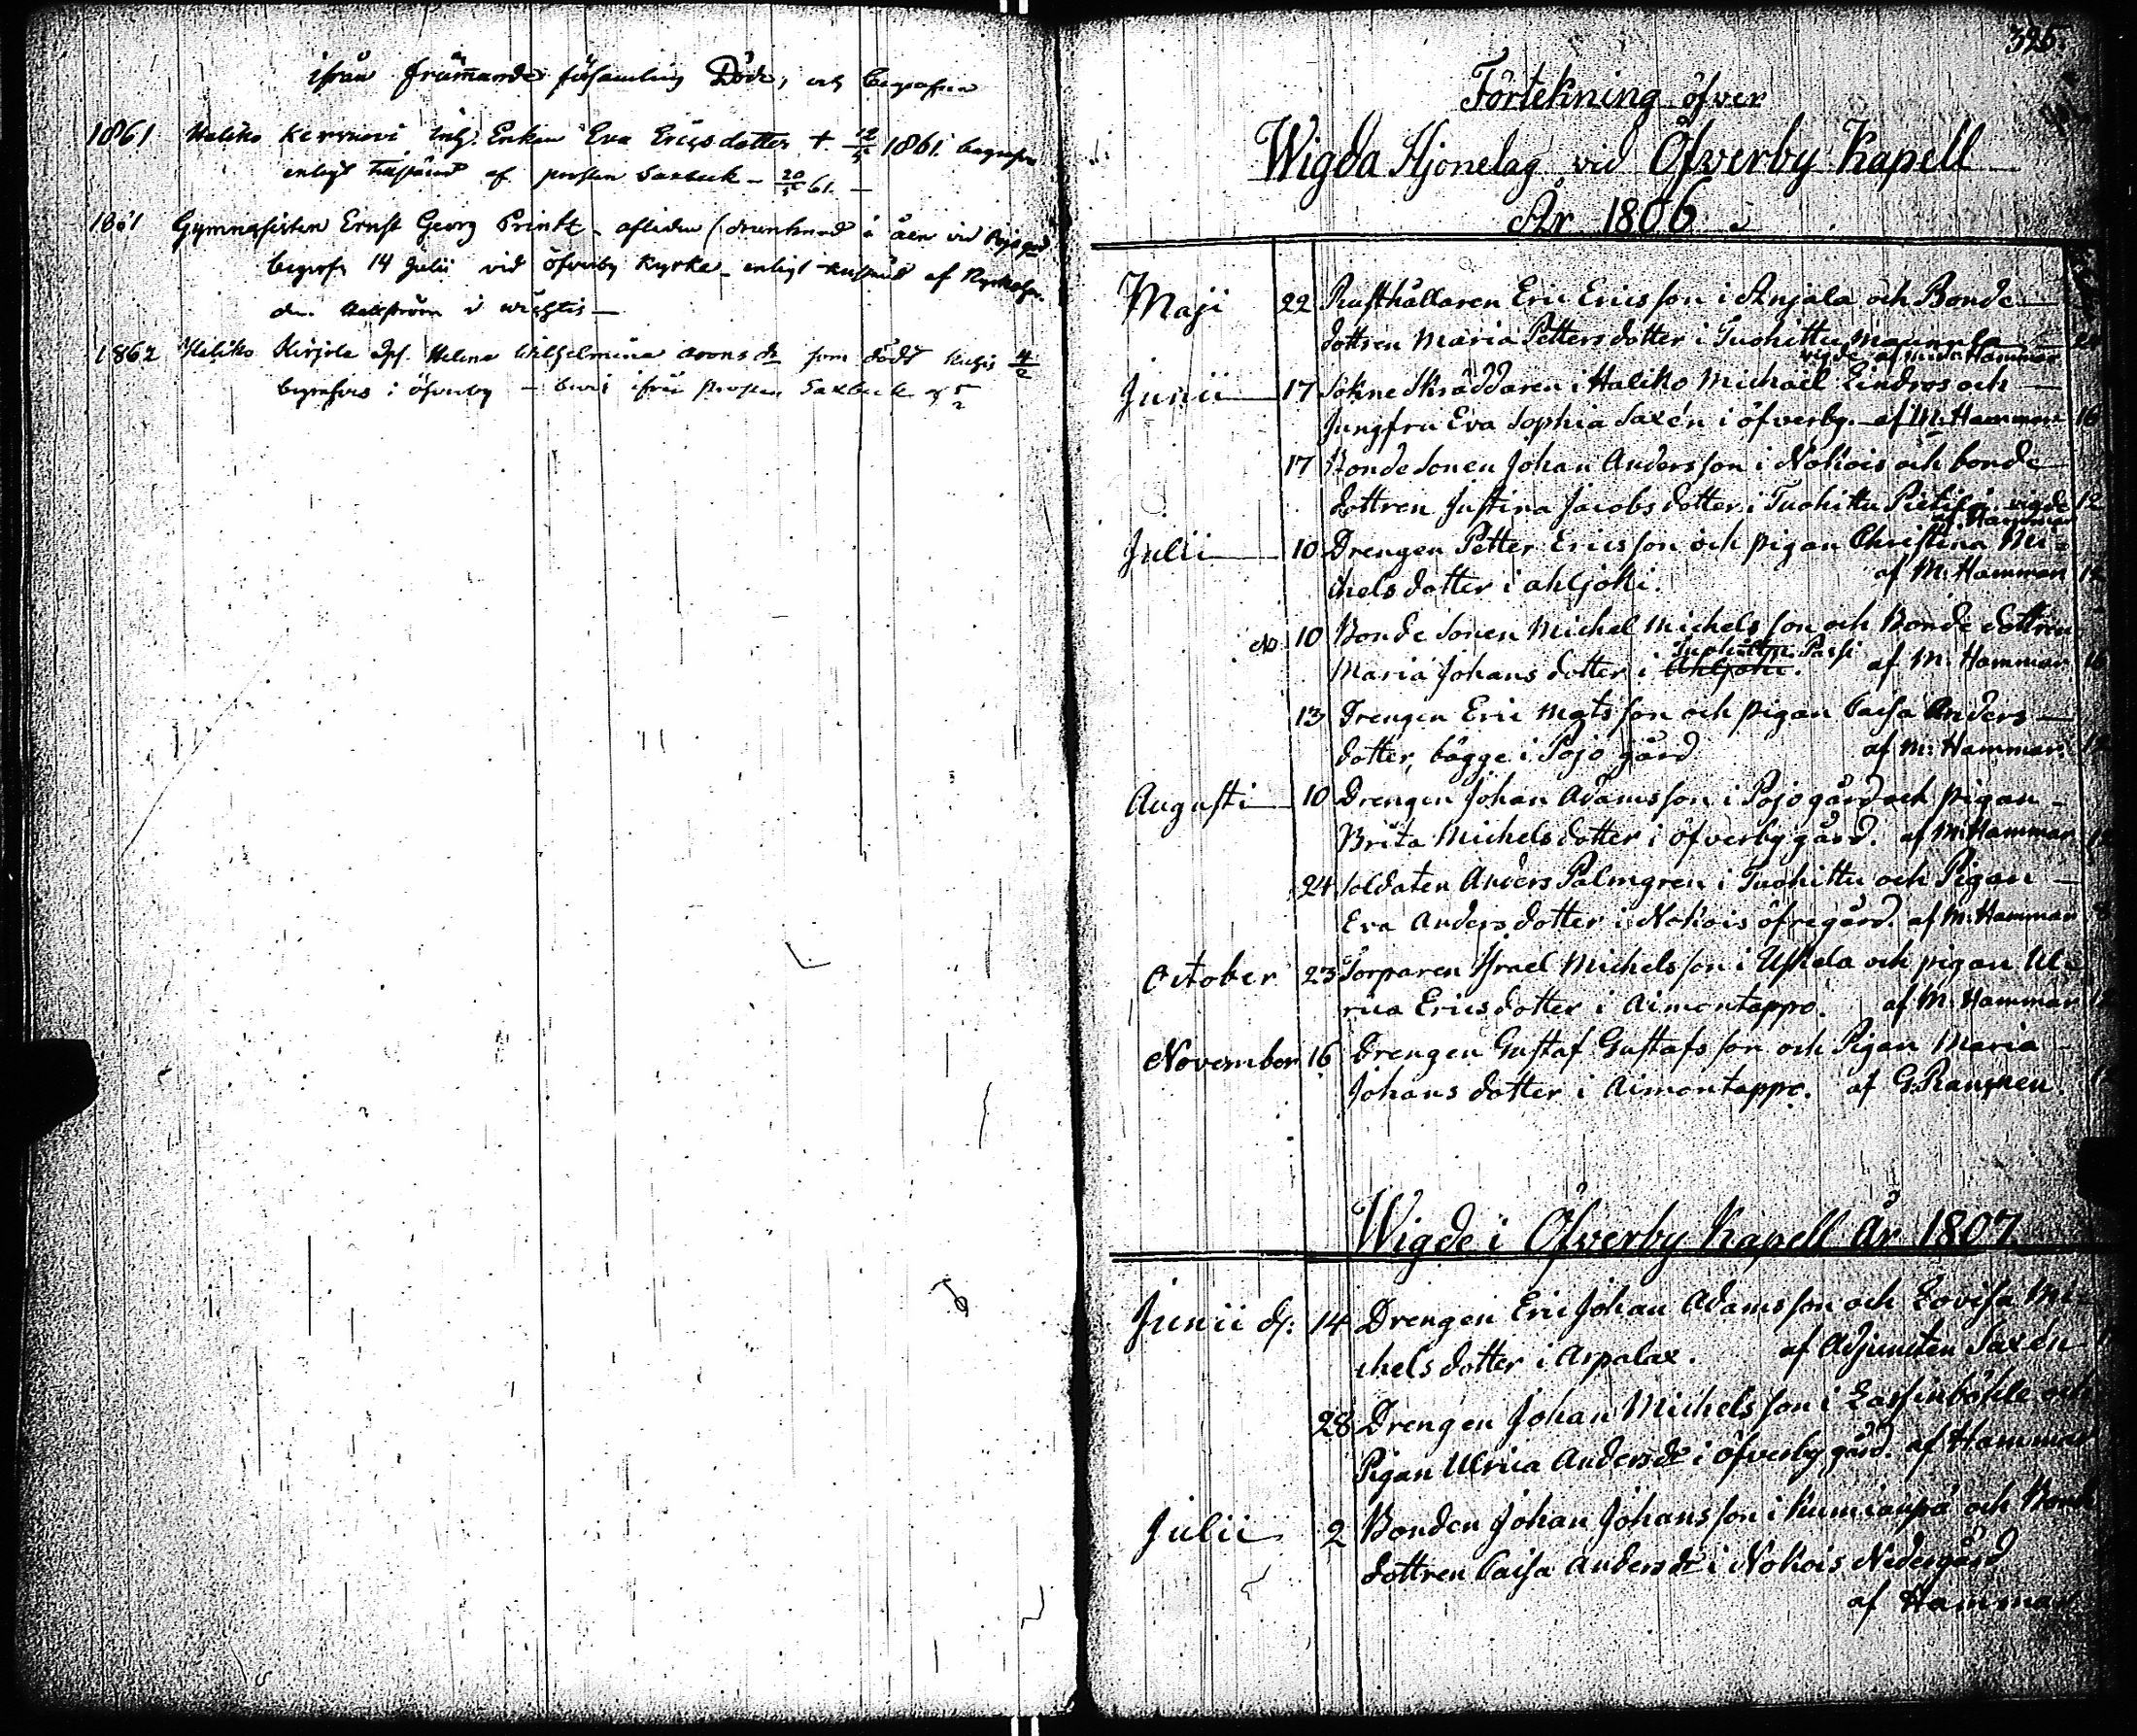 ifrån främmande församling Döde, och begrafne
1861 Haliko Kerrnovi Enkan Eva Ericsdotter + 12/5 1861. begrafven
enligt af prosten Saxbeck - 20/5 61. -
1861 Gymnasisten Ernst Georg Printz - afliden (drunknad i åen vid Pojo gård
begrofs 14 Julii vid öfverby Kyrka - enligt af Kyrkoher-
den i wichtis -
1862 Haliko Kirjola Helena Wilhelmina som dödt 4/2
begrafves i öfverby - ifrån prosten Saxbeck af 5/2
325.
Förtekning öfver
Wigda Hjonelag vid Öfverby Kapell
År 1806
Maji 22 Rusthållaren Eric Ericsson i Anjala och Bonde-
dottren Maria Pettersdotter i Tuohittu Maunula
vigde af Hammar
Junii 17 Sokne Skräddaren i Haliko Michaël Lindros och
Jungfru Eva Sophia Saxén i öfverby. af M: Hammar 16
17 Bonde Sonen Johan Andersson i Nokois och bonde
dottren Justina Jacobsdotter i Tuohittu vigde 12
af Hammar
Julii 10 Drengen Petter Ericsson och pigan Christina Mi-
chelsdotter i ahljoki. af M: Hammar 12
10 Bonde Sonen Michel Michelsson och Bonde dottren
Tuohittu Passi
Maria Johansdotter i Ahljoki. af M: Hammar 16
13 Drengen Eric Matsson och pigan Caisa Anders-
dotter, bägge i Pojo gård af M: Hammar.
Augusti 10 Drengen Johan Adamsson i Pojo gård och pigan
Brita Michelsdotter i öfverby gård. af M: Hammar
24 Soldaten Anders Palmgren i Tuohittu och Pigan
Eva Andersdotter i Nokois öfregård. af M: Hammar 8
October 23 Torparen Israel Michelsson i Uskela och pigan Ul-
rica Ericsdotter i Aimontappo. af M: Hammar
November 16 Drengen Gustaf Gustafsson och Pigan Maria
Johansdotter i Aimontappo. af G: Rancken
Wigde i Öfverby Kapell År 1807
Junii d: 14 Drengen Eric Johan Adamsson och Lovisa Mi-
chelsdotter i Arpalax. af Adjuncten Saxén
28 Drengen Johan Michelsson i Lassinböhle och
Pigan Ulrica Andersdr i öfverby gård. af Hammar
Julii 2 Bonden Johan Johansson i Kumianpä och Bonde
dottren Caisa Andersdr i Nokois Nedergård
af Hammar